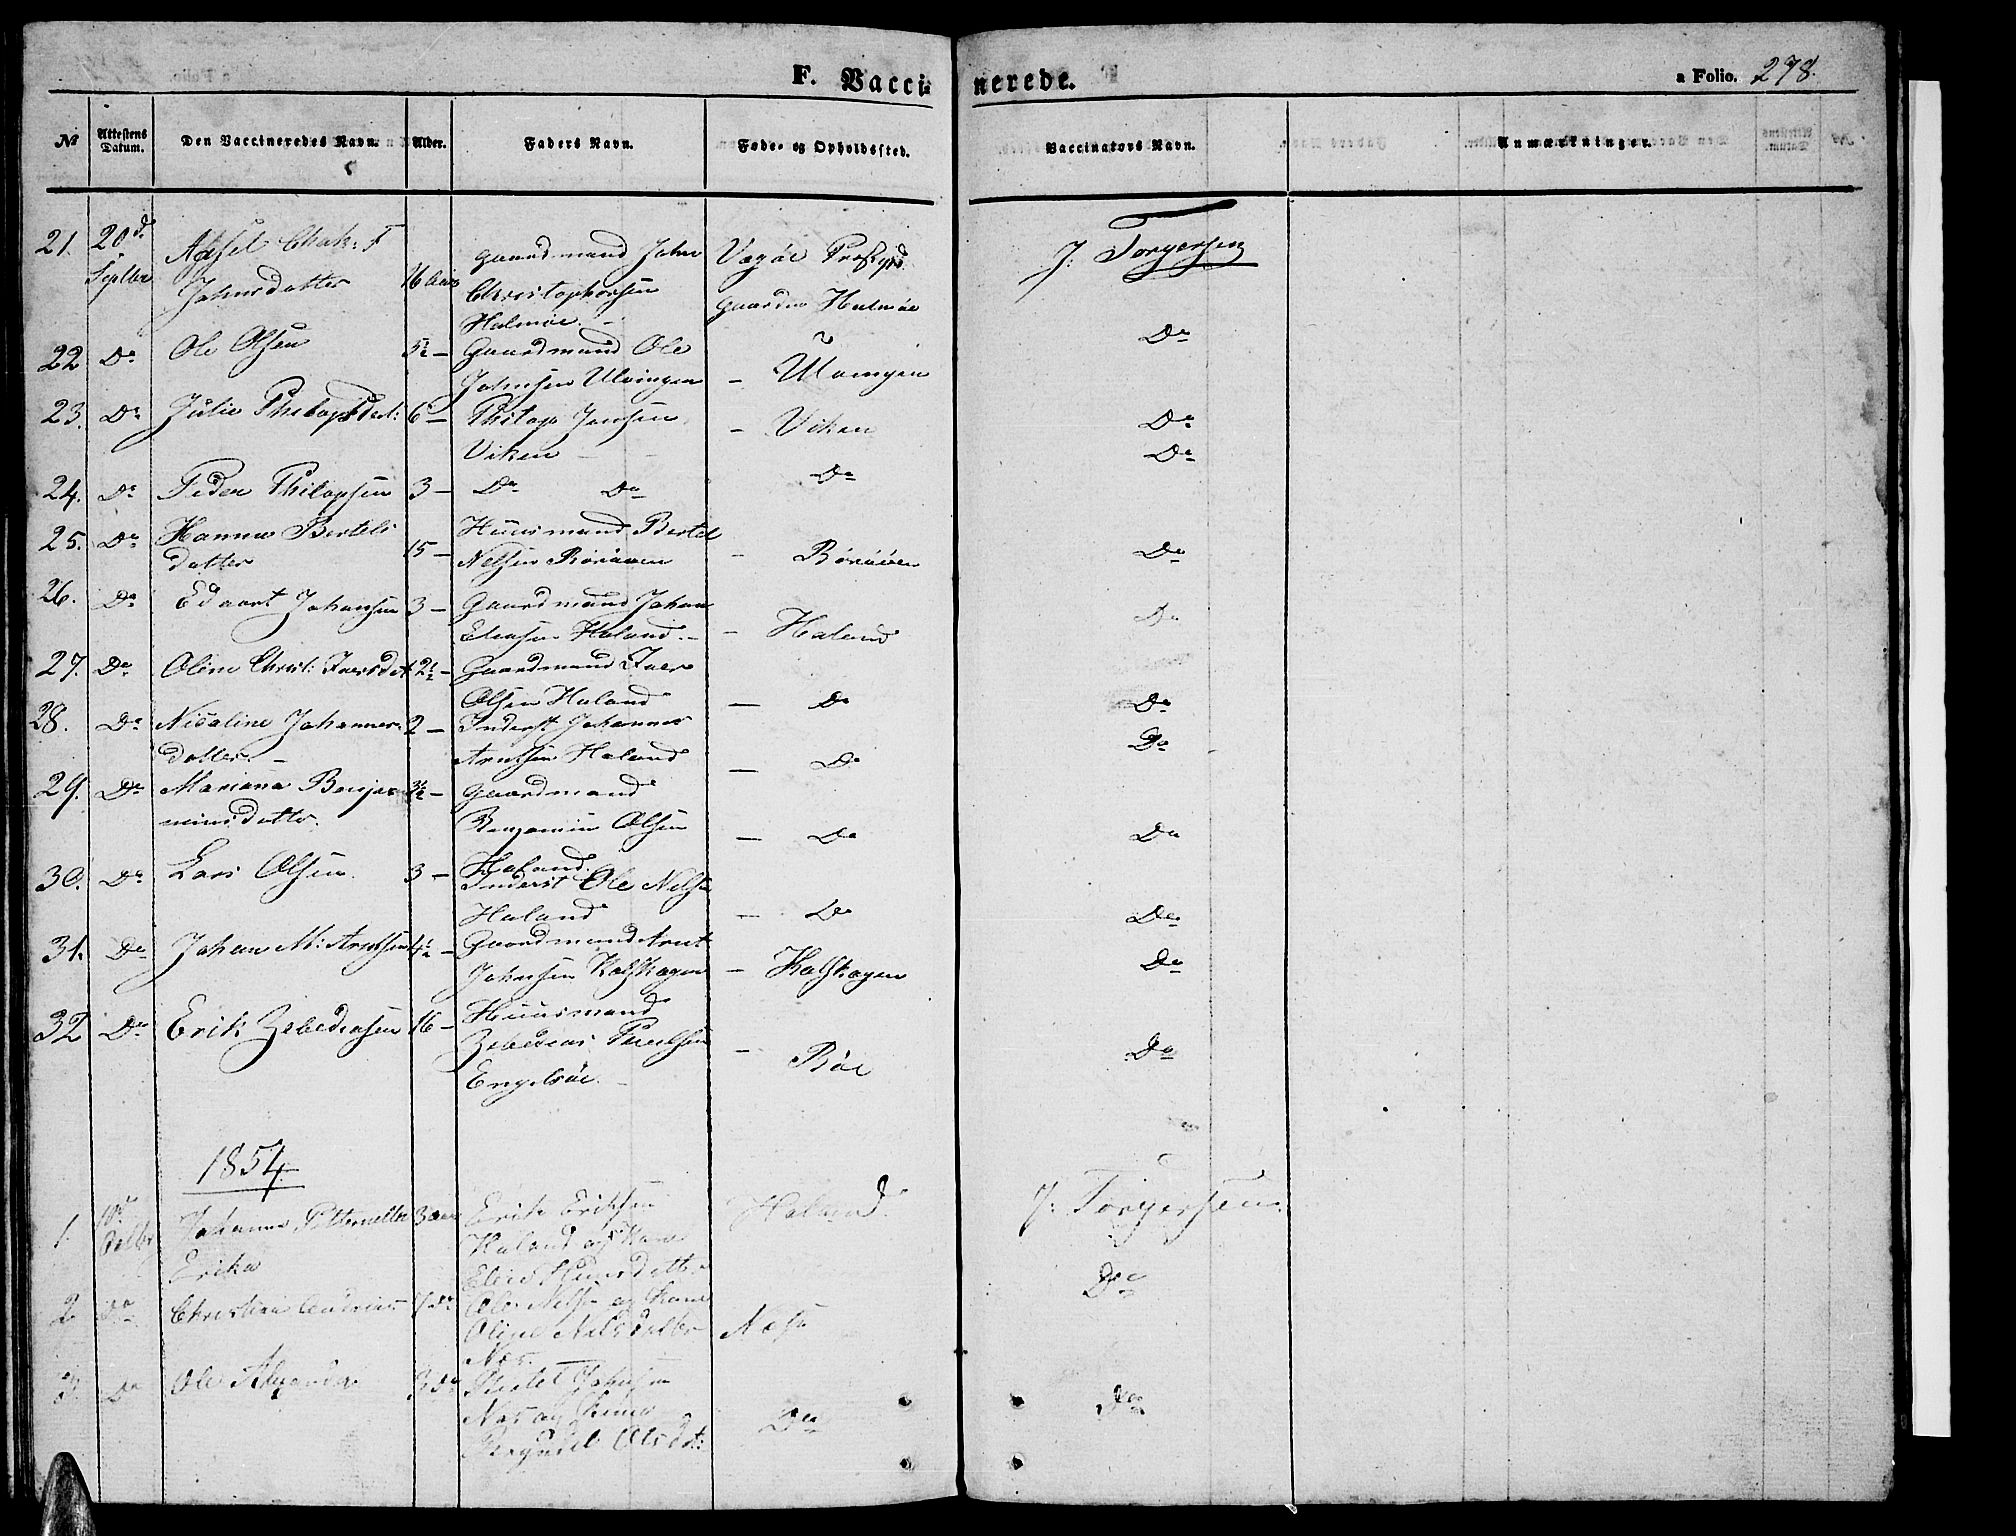 F. Vacci-
nerede.
a Folio. 278.
No Attestens Datum. Den Vaccineredes Navn. Alder. Faders Navn. Føde- og Opholdssted. Vaccinators Navn. Anmærkninger.
21. 20d Septbr Axsel Chat: F Johnsdatter 16 Gaardmand John Christophersen Halmøe Vegøe Præstgjd. gaarden Halmøe J: Torgersen
22 Do Ole Olsen 5½ - Gaardmand Ole Johnsen Ulvingen - Ulvingen Do
23. Do Julie Philopsdat: 6 - Philop Jensen Viken - Viken Do
24. Do Peder Philopsen 3 - Do Do Do Do
25. Do Hanna Bertels datter 15 - Huusmand Bertel Nelsen Rørøøen - Rørøøen Do
26. Do Edvart Johansen 3 - Gaardmand Johan Eliasen Haland. - Haland Do
27. Do Oline Christ: Iversdat 2½ - Gaardmand Iver Olsen Haland - Do Do
28. Do Nicoline Johannes- datter 2 - Inderst Johannes Arntsen Haland - Do Do
29. Do Mariana Benja- minsdatter. 3½ - Gaardmand Benjamin Olsen Haland. - Do Do
30. Do Lars Olsen. 3 - Inderst Ole Nelsen Haland - Do Do
31. Do Johan M: Arntsen 4½ - Gaardmand Arnt Johnsen Kalskagen - Halskagen Do
32 Do Erik Zebediasen 16 - Huusmand Zebedias Paulsen Engelsøe. - Bøe Do
1854.
1. 10d Octbr Johanna Petternelle Erika 3 aar Erik Eriksen Haland og Kone Elen Hansdatter Haland. J: Torgersen.
2 Do Christian Andreas Do Ole Nelsen og Kone Oline Nelsdatter Næs. Næss Do
3. Do Ole Alexander 3 Do Johnsen Næs og Kone Olsdt: Do Do